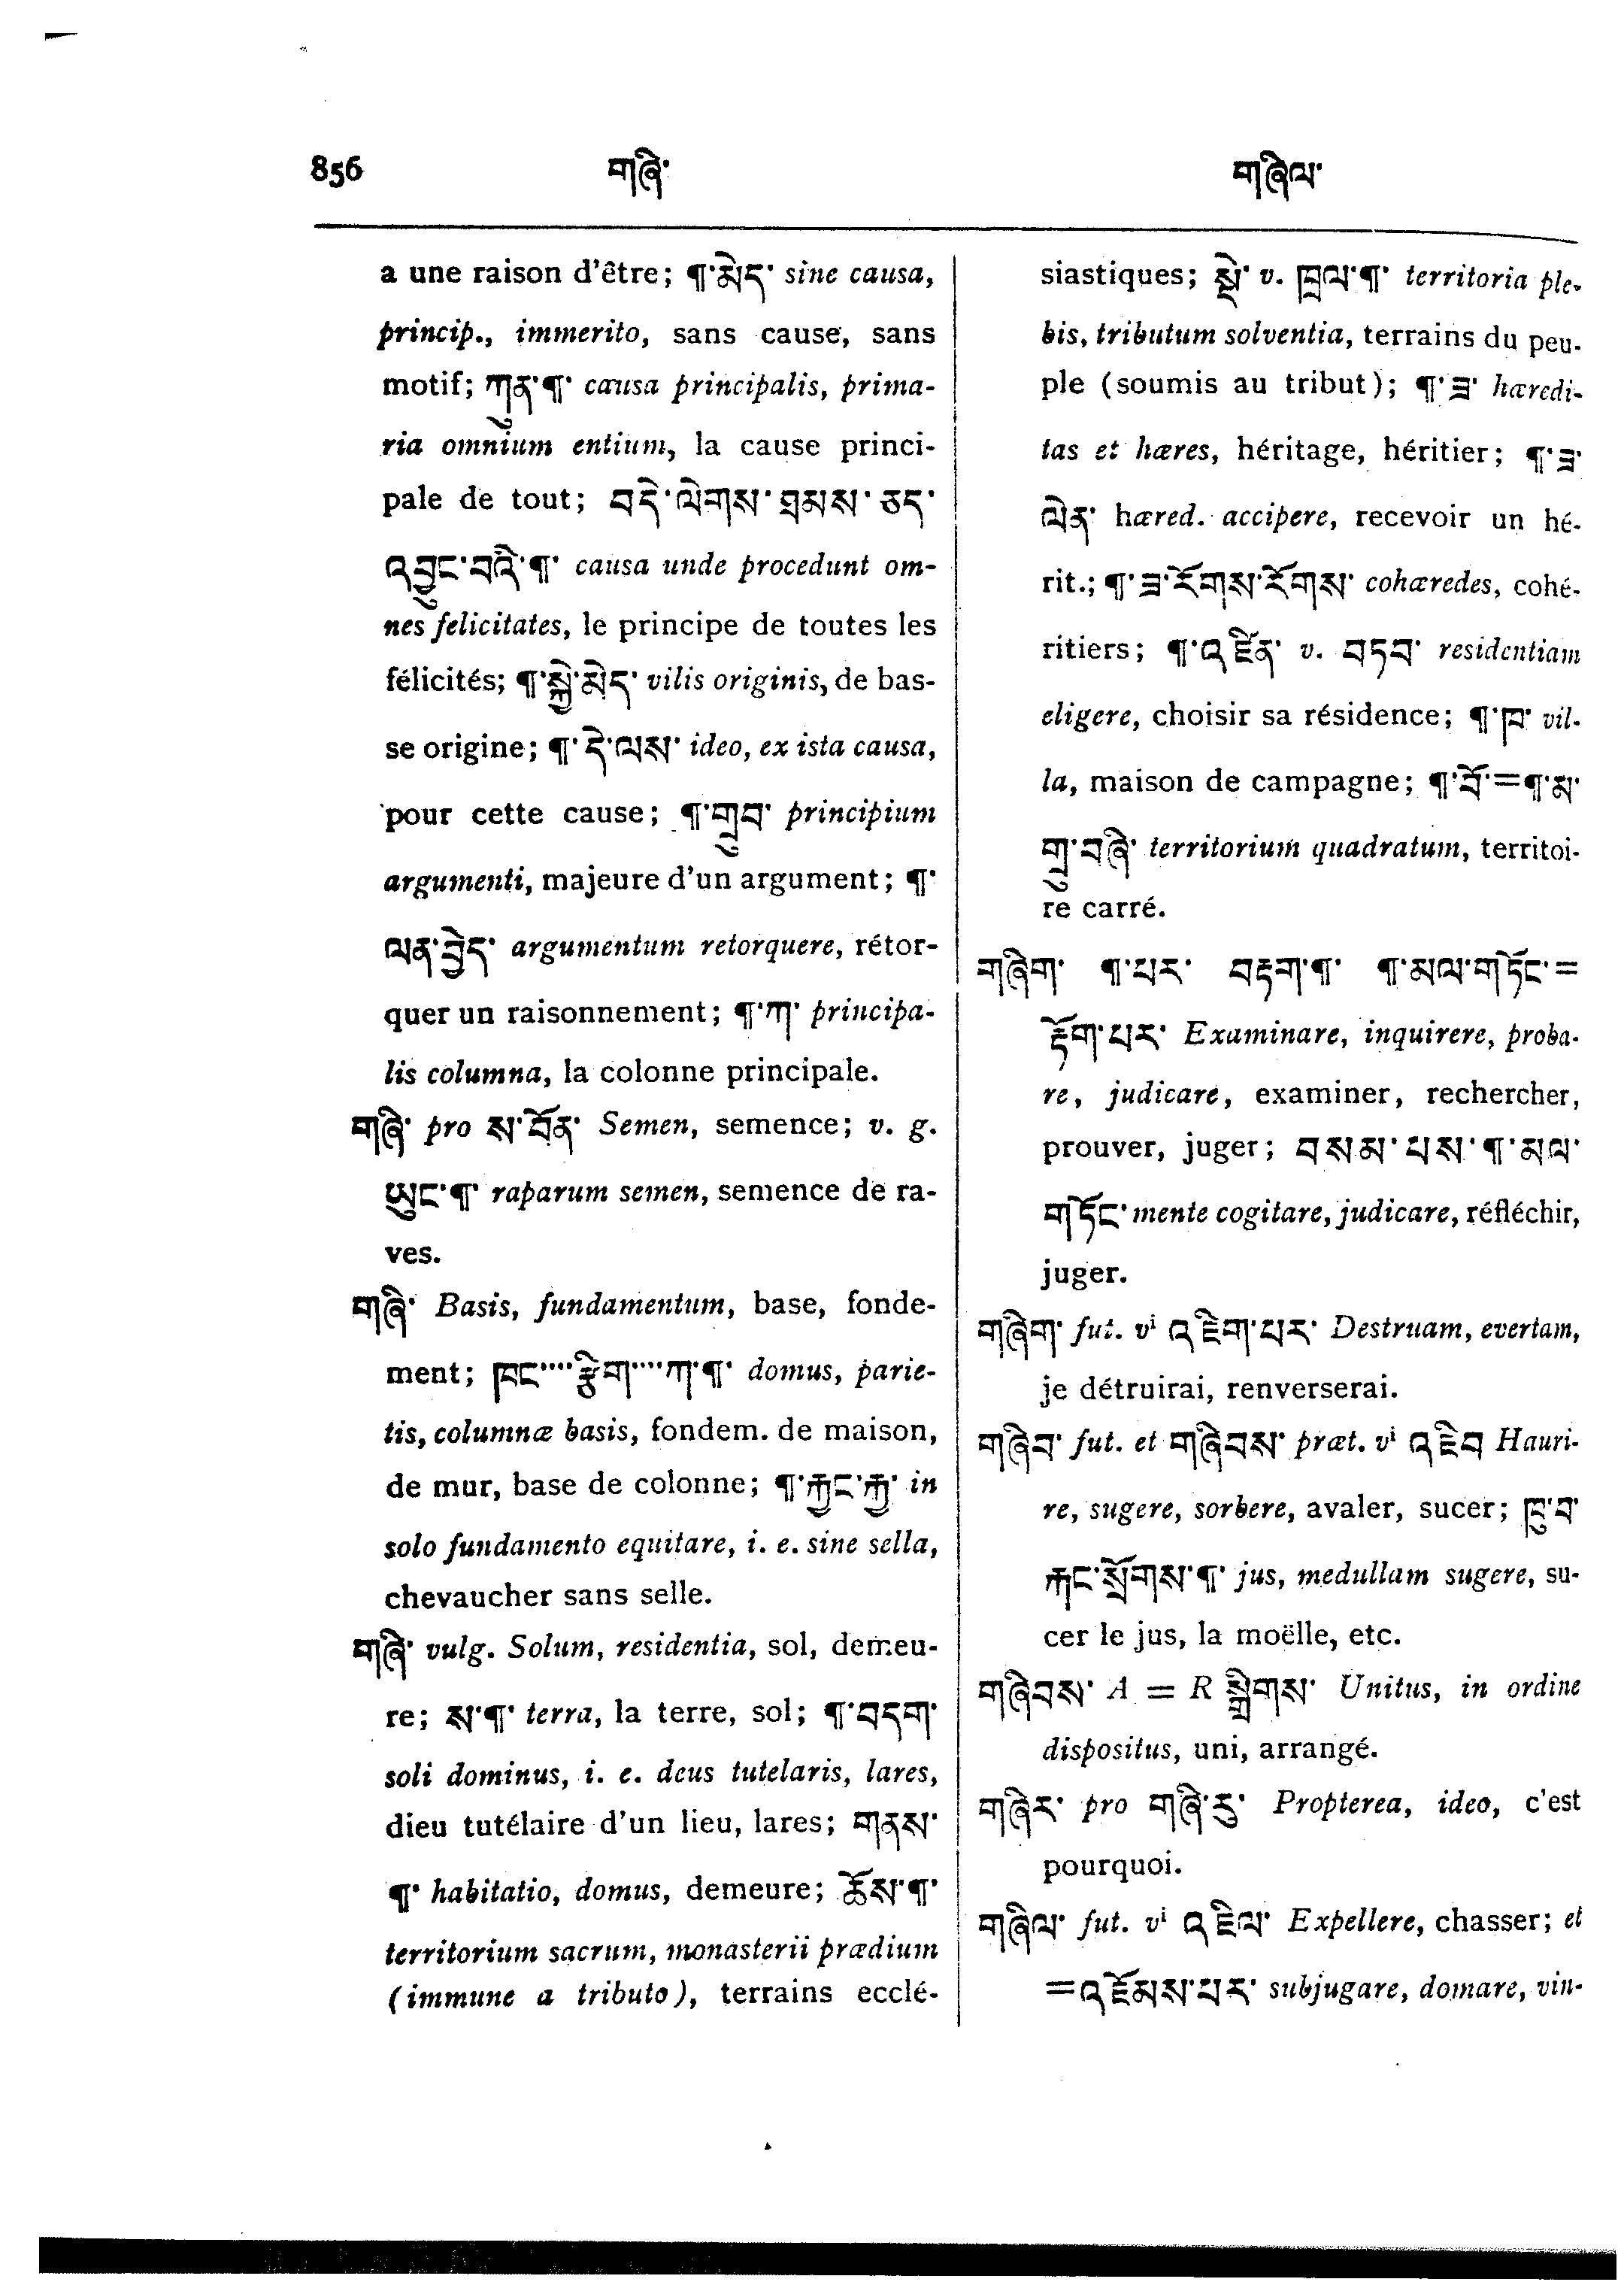 856 གཞི་ གཞིལ་
a une raison d'être; ¶་མེད་ sine causa,
princip., immerito, sans cause, sans
motif; ཀུན་¶་ causa principalis, prima-
ria omnium entium, la cause princi-
pale de tout; བདེ་ལེགས་ཐམས་ཅད་
འབྱུང་བའི་¶་ causa unde procedunt om-
nes felicitates, le principe de toutes les
félicités; ¶་སྐྱེ་མེད་ vilis originis, de bas-
se origine; ¶་དེ་ལས་ ideo, ex ista causa,
pour cette cause; ¶་གྲུབ་ principium
argumenti, majeure d'un argument; ¶་
ལན་བྱེད་ argumentum retorquere, rétor-
quer un raisonnement; ¶་ཀ་ principa-
lis columna, la colonne principale.
གཞི་ pro ས་བོན་ Semen, semence; v. g.
ཡུང་¶་ raparum semen, semence de ra-
ves.
གཞི་ Basis, fundamentum, base, fonde-
ment; ཁང་་་་་རྩིག་་་་་ཀ་¶་ domus, parie-
tis, columnæ basis, fondem. de maison,
de mur, base de colonne; ¶་རྐྱང་རྐྱ་ in
solo fundamento equitare, i. e. sine sella,
chevaucher sans selle.
གཞི་ vulg. Solum, residentia, sol, demeu-
re; ས་¶་ terra, la terre, sol; ¶་བདག་
soli dominus, i. e. deus tutelaris, lares,
dieu tutélaire d'un lieu, lares; གནས་
¶་ habitatio, domus, demeure; ཆོས་¶་
territorium sacrum, monasterii prædium
(immune a tributo), terrains ecclé-
siastiques; སྡེ་ v. ཁྲལ་¶་ territoria ple-
bis, tributum solventia, terrains du peu-
ple (soumis au tribut); ¶་ཟ་ hæredi-
tas et hæres, héritage, héritier; ¶་ཟ་
ལེན་ hæred. accipere, recevoir un hé-
rit.; ¶་ཟ་རོགས་རོགས་ cohæredes, cohé-
ritiers; ¶་འཛིན་ v. བཏབ་ residentiam
eligere, choisir sa résidence; ¶་ཁ་ vil-
la, maison de campagne; ¶་བོ་=¶་མ་
གྲུ་བཞི་ territorium quadratum, territoi-
re carré.
གཞིག་ ¶་པར་ བརྟག་¶་ ¶་མལ་གཏོང་=
རྟོག་པར་ Examinare, inquirere, proba-
re, judicare, examiner, rechercher,
prouver, juger; བསམ་པས་¶་མལ་
གཏོང་ mente cogitare, judicare, réfléchir,
juger.
གཞིག་ fut. vⁱ འཇིག་པར་ Destruam, evertam,
je détruirai, renverserai.
གཞིབ་ fut. et གཞིབས་ præt. vⁱ འཇིབ Hauri-
re, sugere, sorbere, avaler, sucer; ཁུ་བ་
རྐང་སོགས་¶་ jus, medullam sugere, su-
cer le jus, la moëlle, etc.
གཞིབས་ A = R སྒྲིགས་ Unitus, in ordine
dispositus, uni, arrangé.
གཞིར་ pro གཞི་རུ་ Propterea, ideo, c'est
pourquoi.
གཞིལ་ fut. vⁱ འཇིལ་ Expellere, chasser; et
=འཇོམས་པར་ subjugare, domare, vin-